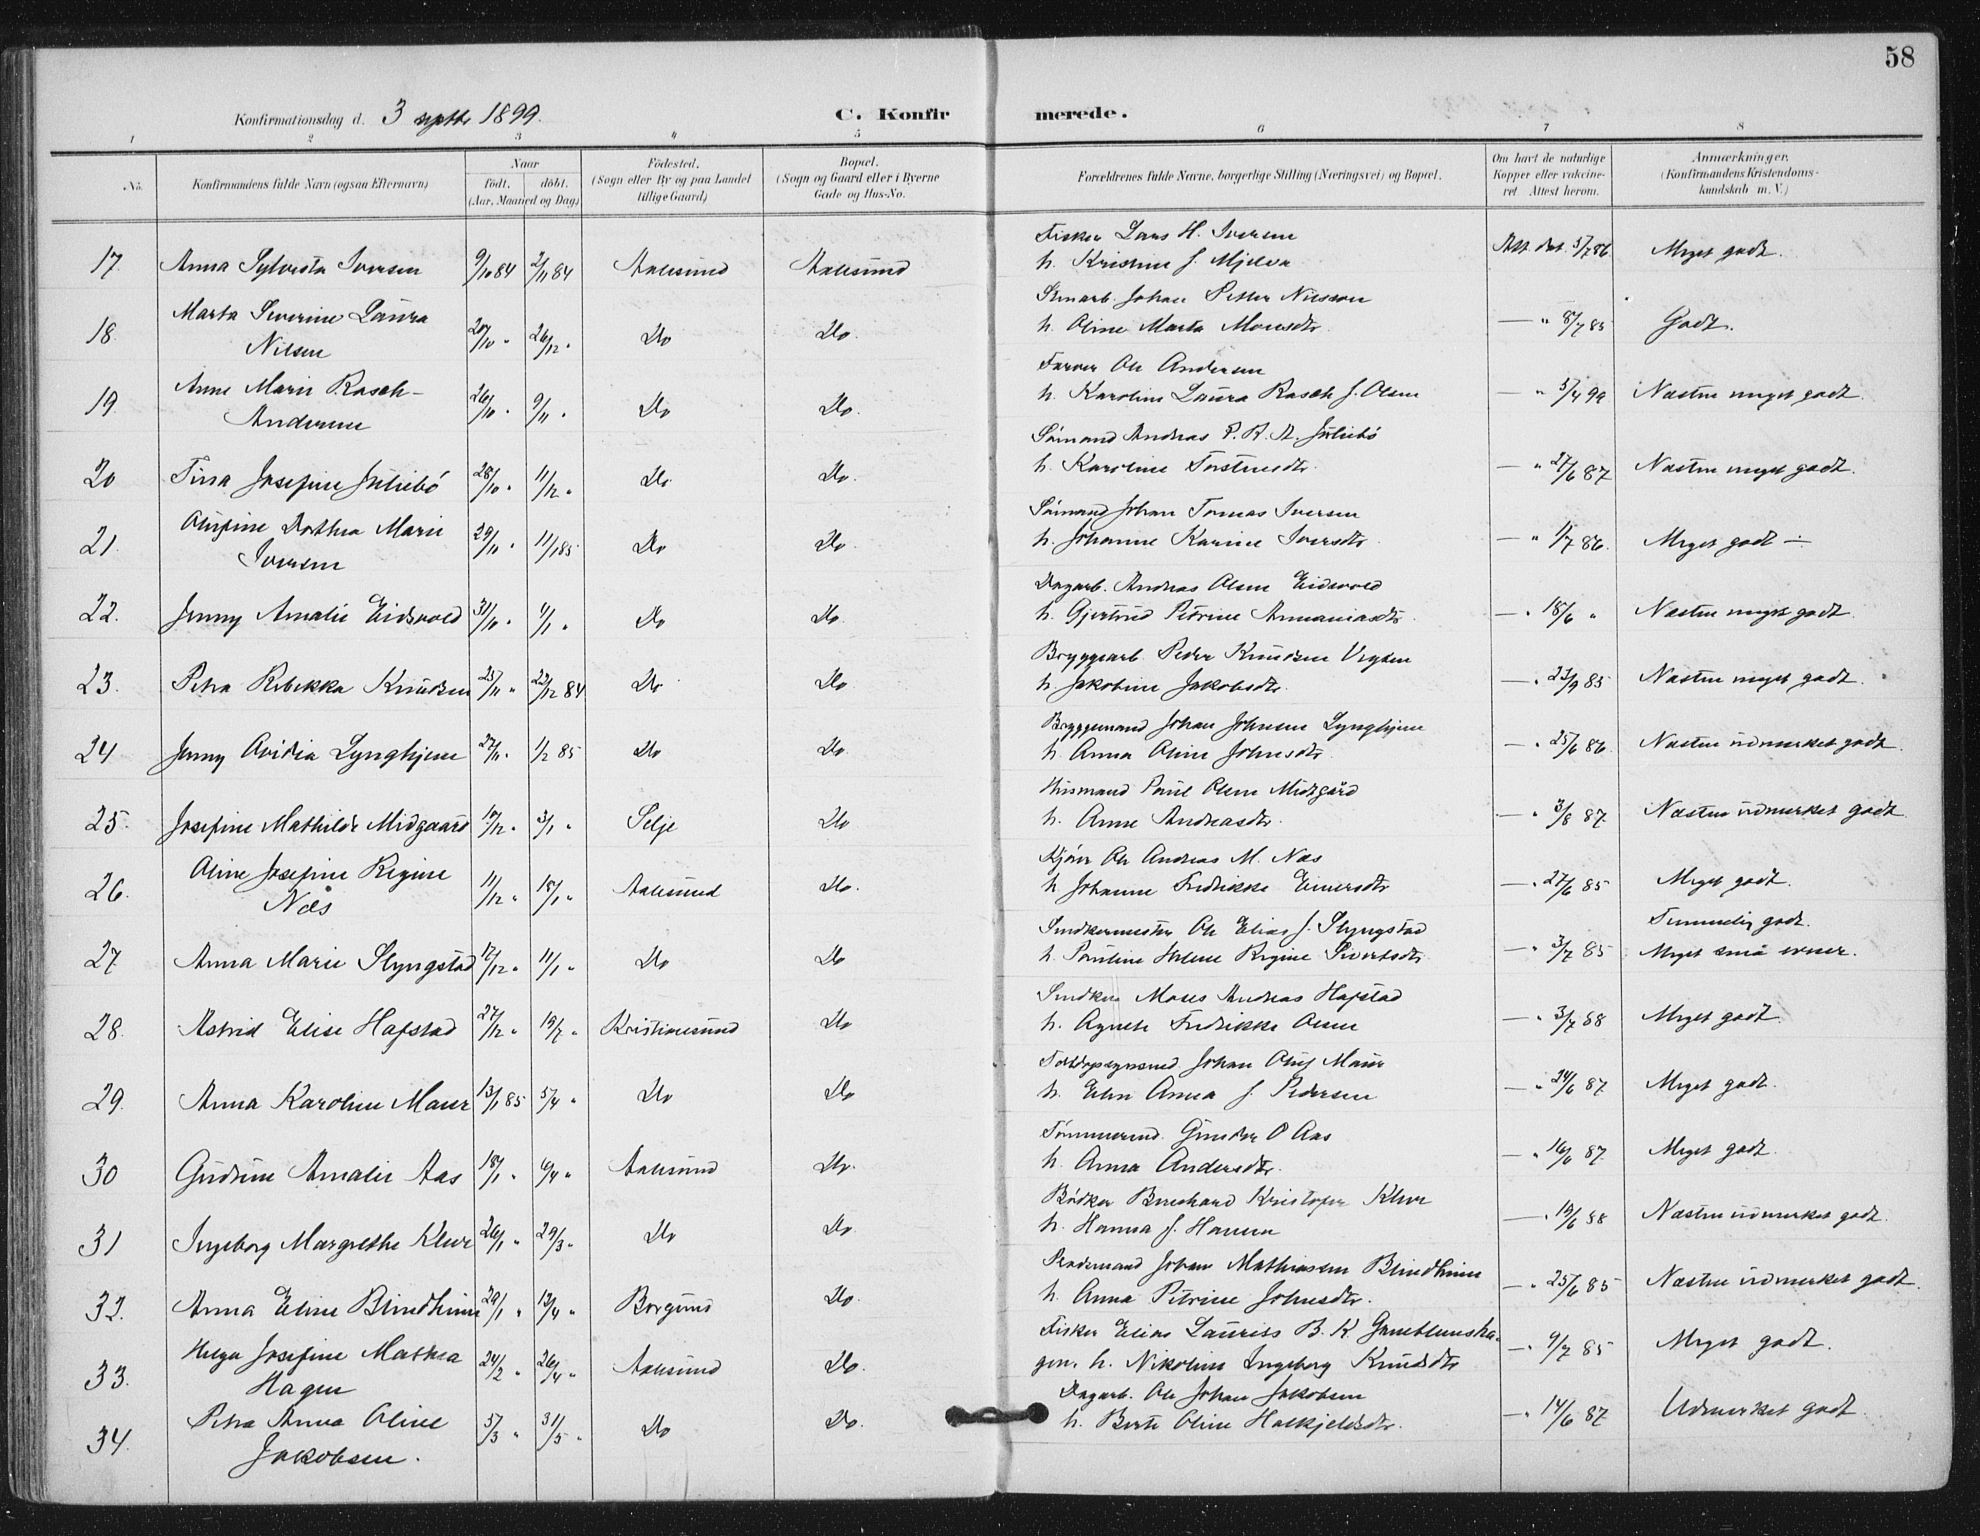 58
Konfirmationsdag d. 3 septbr 1899.
C. Konfirmerede.
1 2 3 4 5 6 7 8
No. Konfirmandens fulde Navn (ogsaa Efternavn) Naar født. døbt. (Aar, Maaned og Dag) Fødested. (Sogn eller By og paa Landet tillige Gaard) Bopæl. (Sogn og Gaard eller i Byerne Gade og Hus-No. Forældrenes fulde Navne, borgerlige Stilling (Næringsvei) og Bopæl. Om havt de naturlige Kopper eller vakcineret. Attest herom. Anmærkninger. (Konfirmandens Kristendomskundskab m. V.)
Fisker Lars H. Iversen
17. Anna Sylvesta Iversen 9/10 84 2/11 84 Aalesund Aalesund h. Kristine f. Mjelva Att. dat. 5/7 86. Meget godt.
Marta Severine Laura Johan Petter Nilsson
18. Nilsen 20/10 " 26/12 " Do Do. h. Oline Marta Monsdtr. — " 8/7 85 Godt.
Anne Marie Rasch- Farver Ole Andersen
19. Andersen 26/10 " 9/11 " Do Do. h. Karoline Laura Rasch f. Olsen — " 5/4 99 Næsten meget godt.
Sømand Andreas P. B. A. Juliebø
20 Tina Josefine Juliebø 28/10 " 11/12 " Do Do. h. Karoline Torstensdtr. — " 27/6 87 Næsten meget godt.
Olufine Dorthea Marie Sømand Johan Tomas Iversen
21. Iversen 29/11 " 11/1 85 Do Do. h. Johanne Karine Iversdtr. — " 1/7 86. Meget godt ÷
Dagarb. Andreas Olsen Eidsvold
22. Jenny Amalie Eidsvold 31/10 " 1/1 " Do Do. h. Gjertrud Petrine Annaniasdtr. — " 18/6 " Næsten meget godt.
Bryggearb. Peder Knudsen Vegsen
23. Petra Rebekka Knudsen 25/11 " 22/12 84 Do Do h. Jakobine Jakobsdtr. — " 23/9 85 Næsten meget godt.
Bryggemand Johan Johnsen Lynghjem
24 Jenny Ovidia Lynghjem 27/11 " 1/2 85 Do Do h. Anna Oline Johnsdtr. — " 25/6 86. Næsten udmerket godt.
Husmand Paul Olsen Midtgård
25. Josefine Mathilde Midgaard 10/12 " 3/1 " Selje Do h. Anne Andreasdtr. — " 3/8 87 Næsten udmerket godt.
Oline Josefine Regine Kjører Ole Andreas M. Næs
26. Næs 11/12 " 18/1 " Aalesund Do. h Johanne Fredrikke Einersdtr — " 27/6 85 Meget godt.
Snedkermester Ole Elias J. Slyngstad Temmelig godt.
27. Anna Marie Slyngstad 12/12 " 11/1 " Do Do h. Pauline Helene Regine Sivertsdtr. — " 3/7 85 Meget små evner.
Snedker Moses Andreas Hafstad
28. Astrid Elise Hafstad 27/12 " 19/7 " Kristiansund Do h. Agnete Fredrikke Olsen — " 3/7 88 Meget godt.
Johan Oluf Maur
29. Anna Karoline Maur 13/1 85 5/4 " Do Do h. Elen Anna f. Pedersen — " 24/6 87 Meget godt.
Tømmermd. Gunder O Aas
30 Gudrun Amalie Aas 18/1 " 6/4 " Aalesund Do. h. Anna Andersdtr. — " 16/6 87. Meget godt.
Bødker Bernhard Kristofer Kleve
31 Ingeborg Margrethe Kleve 26/1 " 29/3 " Do Do h. Hanna f. Hansen — " 19/6 88 Næsten udmerket godt.
Johan Mathiassen Blindheim
32. Anna Eline Blindheim 29/1 " 13/4 " Borgund Do. h. Anna Petrine Johnsdtr. — " 25/6 85 Næsten udmerket godt.
Helga Josefine Mathea Fisker Elias Laurits B. K.
33. Hagen 24/2 " 26/4 " Aalesund Do. gen. h. Nikoline Ingeborg Knudsdtr — " 9/7 85 Meget godt.
Petra Anna Oline Dagarb. Ole Johan Jakobsen
34. Jakobsen. 5/3 " 31/5 " Do Do. h. Berte Oline Halkjelsdtr. — " 14/6 87 Udmerket godt.